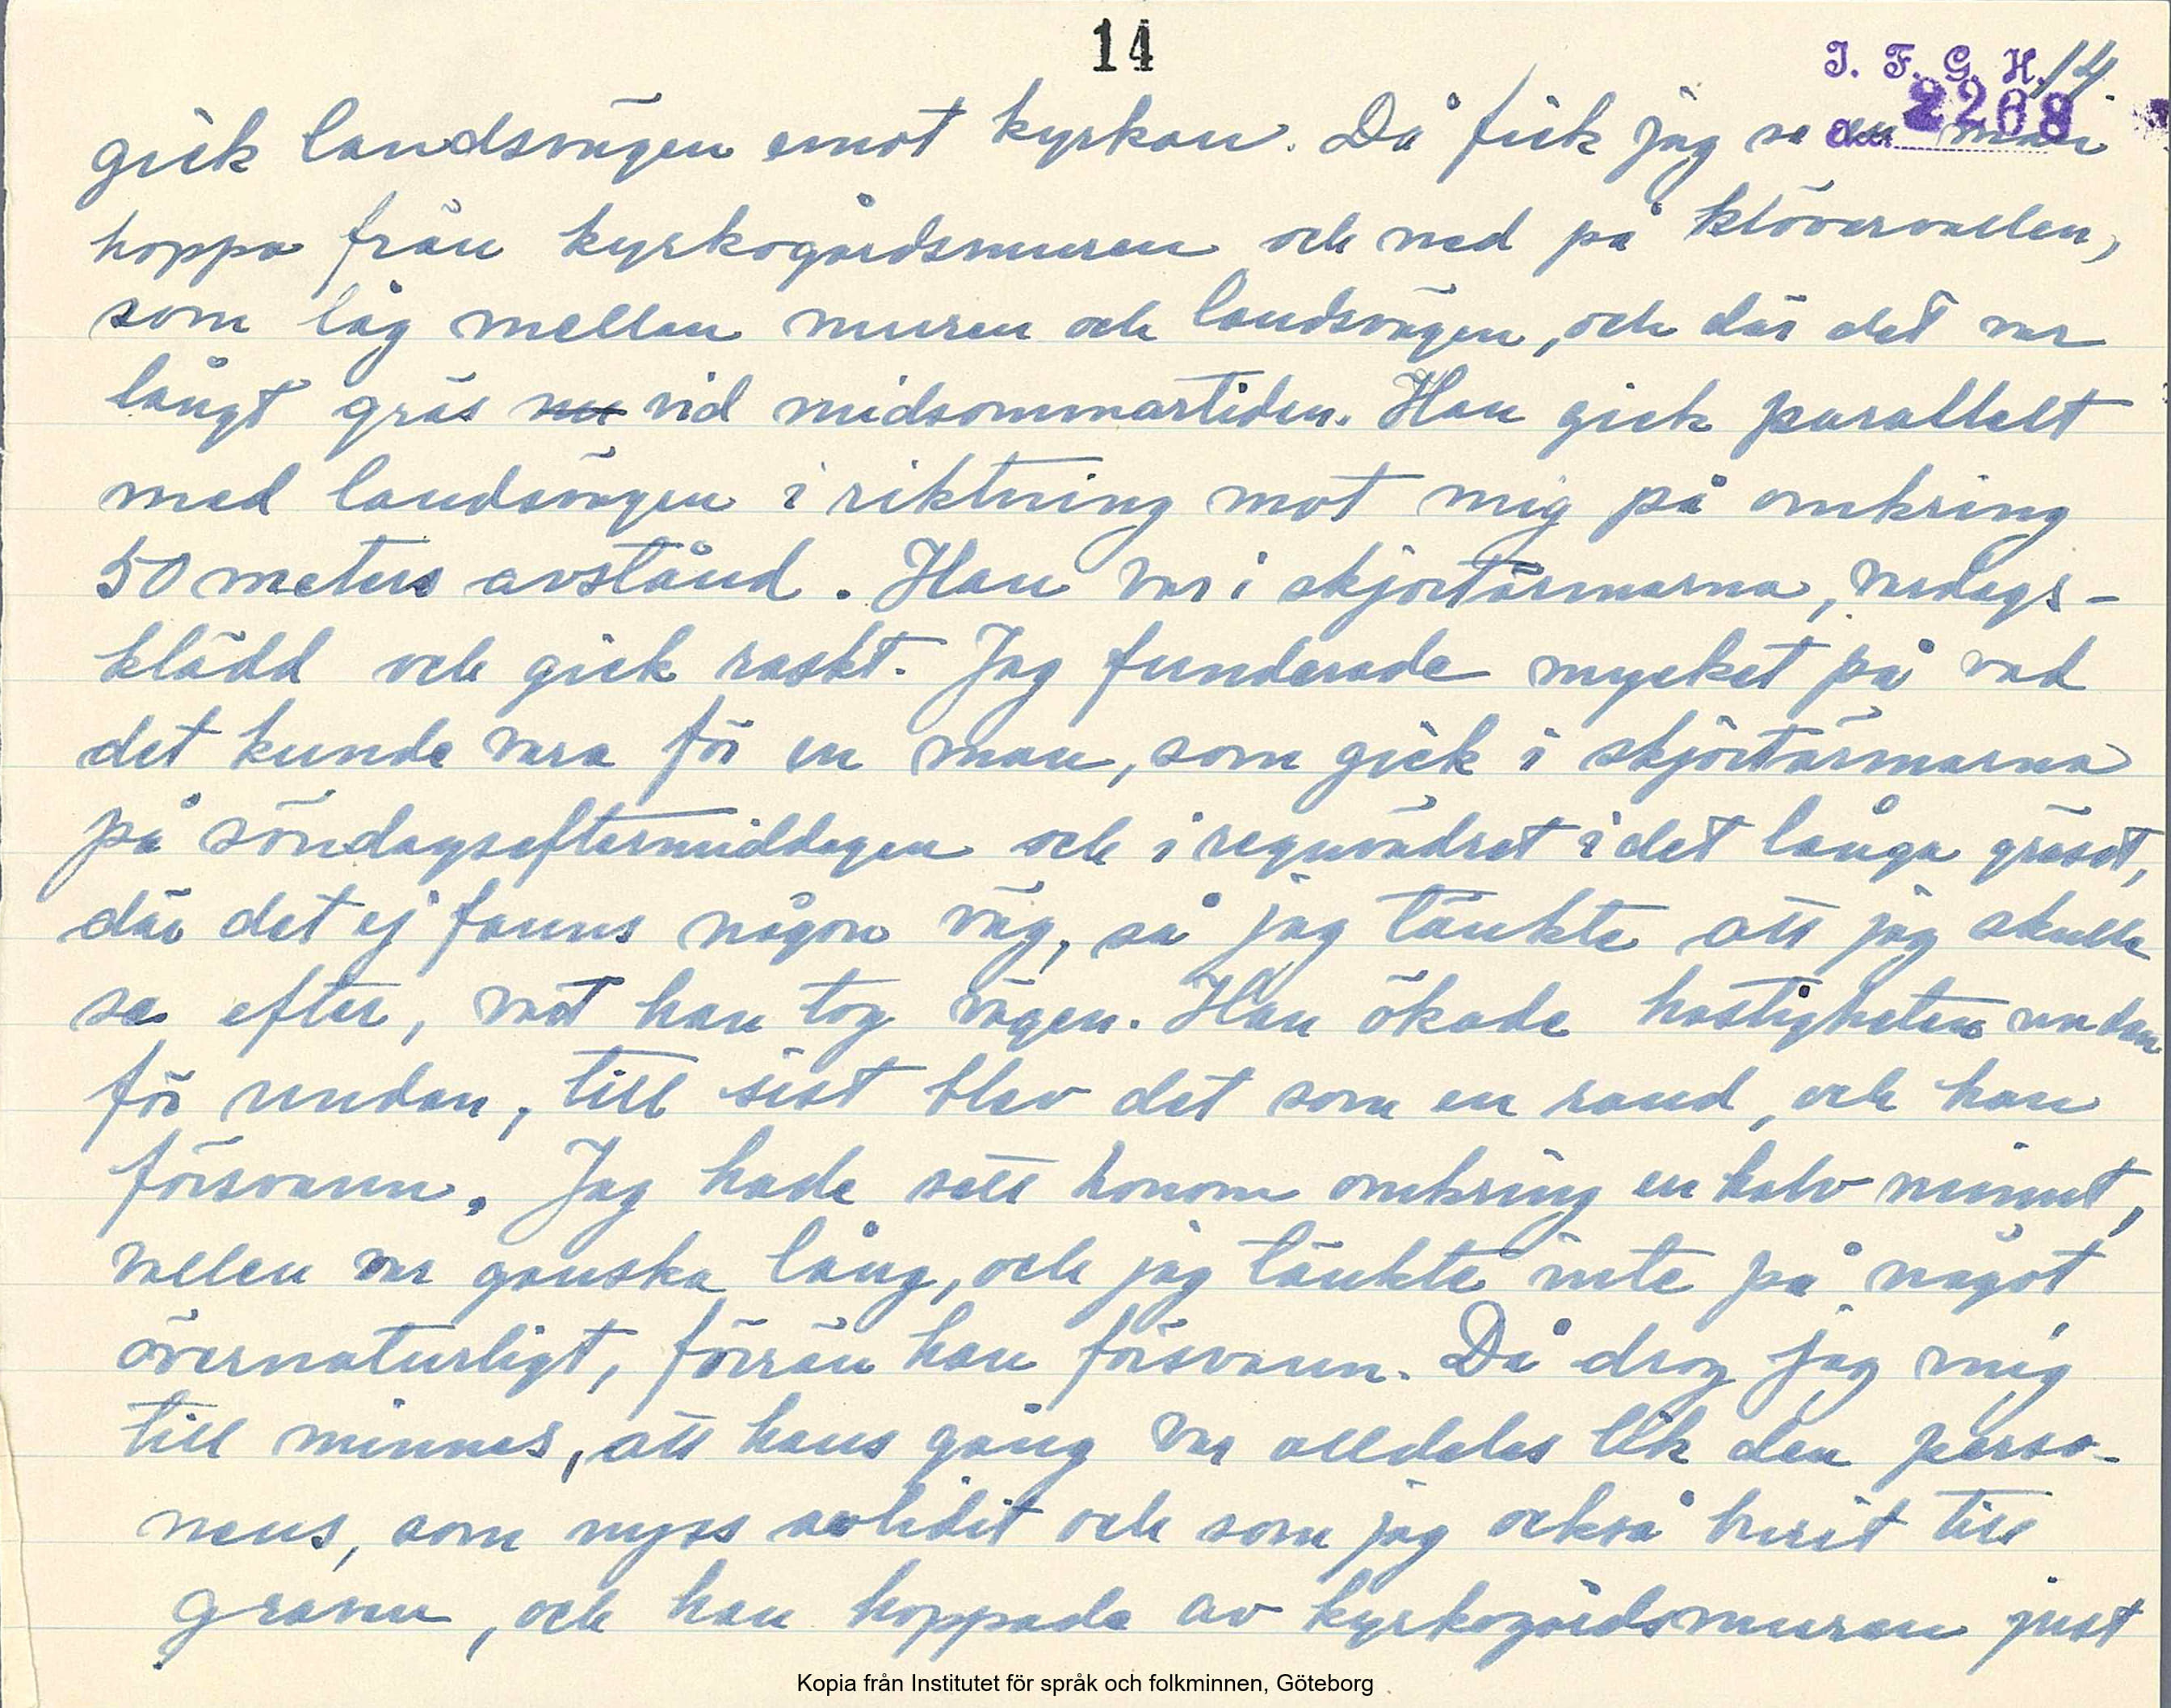 14
I. F. G. H. 14.
acc 2268
gick landsvägen emot kyrkan. Då fick jag se en man
hoppa från kyrkogårdsmuren och ned på klövervallen,
som låg mellan muren och landsvägen, och där det var
långt gräs nu vid midsommartiden. Han gick parallelt
med landsvägen i riktning mot mig på omkring
50 meters avstånd. Han var i skjortärmarna, vardags-
klädd och gick raskt. Jag funderade mycket på vad
det kunde vara för en man, som gick i skjortärmarna
på söndagseftermiddagen och i regnvädret i det långa gräset,
där det ej fanns någon väg, så jag tänkte att jag skulle
se efter, vart han tog vägen. Han ökade hastigheten undan
för undan, till sist blev det som en rand, och han
försvann. Jag hade sett honom omkring en halv minut,
vallen var ganska lång, och jag tänkte inte på något
övernaturligt, förrän han försvann. Då drog jag mig
till minnes, att hans gång var alldeles lik den perso-
nens, som nyss avlidit och som jag också burit till
graven, och han hoppade av kyrkogårdsmuren just
Kopia från Institutet för språk och folkminnen, Göteborg